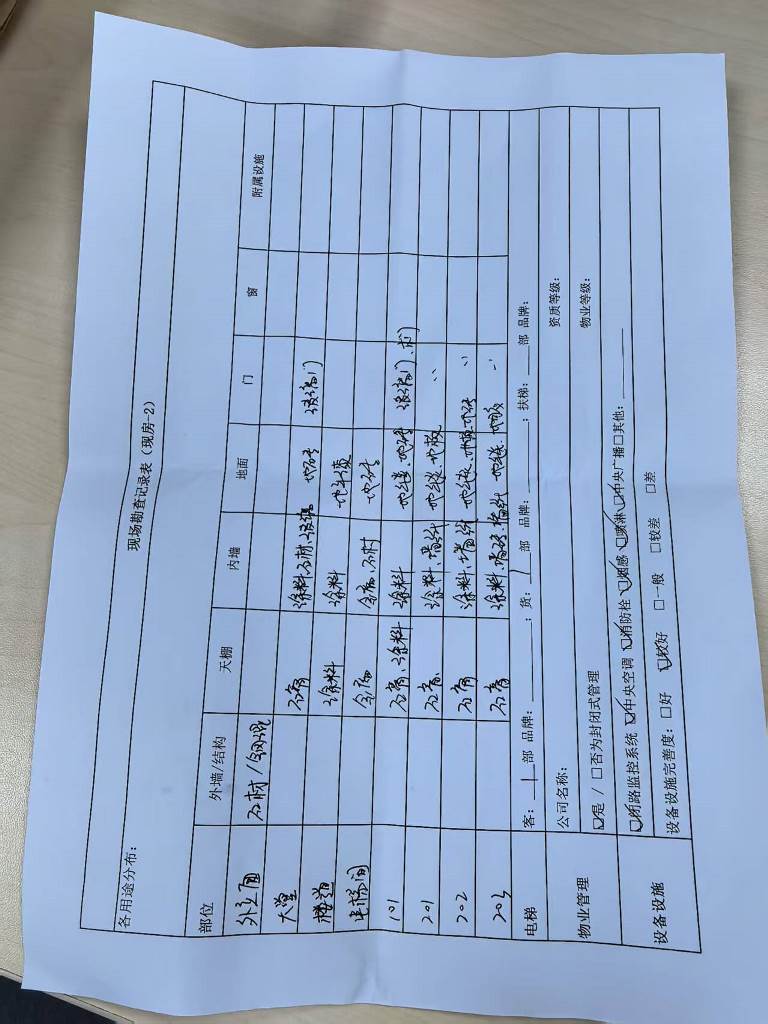 现场勘查记录表（现房-2）
各用途分布：
部位 外墙/结构 天棚 内墙 地面 门 窗 附属设施
外立面 石材/钢混
大堂 石膏 涂料、石材、玻璃 地砖 玻璃门
楼道 涂料 涂料 地坪漆
电梯间 金属 金属、石材 地砖
101 石膏、涂料 涂料 地毯、地砖 玻璃门、
201 石膏 涂料、墙纸 地毯、地板 〃
202 石膏 涂料、墙纸 地毯、地砖 〃
203 石膏 涂料、墙砖、墙纸 地毯、地板 〃
电梯 客：1部 品牌： ；货：1部 品牌： ；扶梯： 部 品牌：
物业管理 公司名称： 资质等级：
☑是 / □否为封闭式管理 物业等级：
设备设施 ☑闭路监控系统 ☑中央空调 ☑消防栓 ☑烟感 ☑喷淋 ☑中央广播 □其他：
设备设施完善度：□好 ☑较好 □一般 □较差 □差